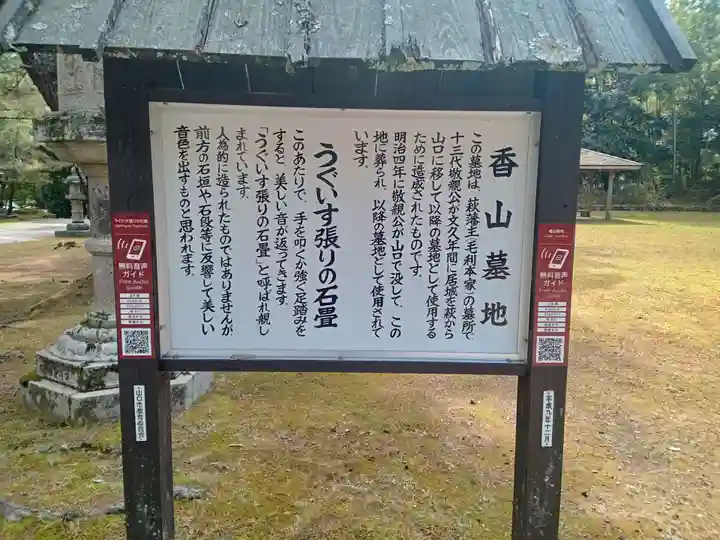 香山墓地
この墓地は、萩藩主（毛利本家）の墓所で
十三代敬親公が文久年間に居城を萩から
山口に移して以降の墓地として使用する
ために造成されたものです。
明治四年に敬親公が山口で没して、この
地に葬られ、以降の墓地として使用されて
います。
うぐいす張りの石畳
このあたりで、手を叩くか強く足踏みを
すると、美しい音が返ってきます。
「うぐいす張りの石畳」と呼ばれ親し
まれています。
人為的に造られたものではありませんが
前方の石垣や石段等に反響して美しい
音色を出すものと思われます。
無料音声
ガイド
Free Audio
Guide
平成九年十二月
うぐいす張りの石畳
無料音声
ガイド
Free Audio
Guide
山口市教育委員会